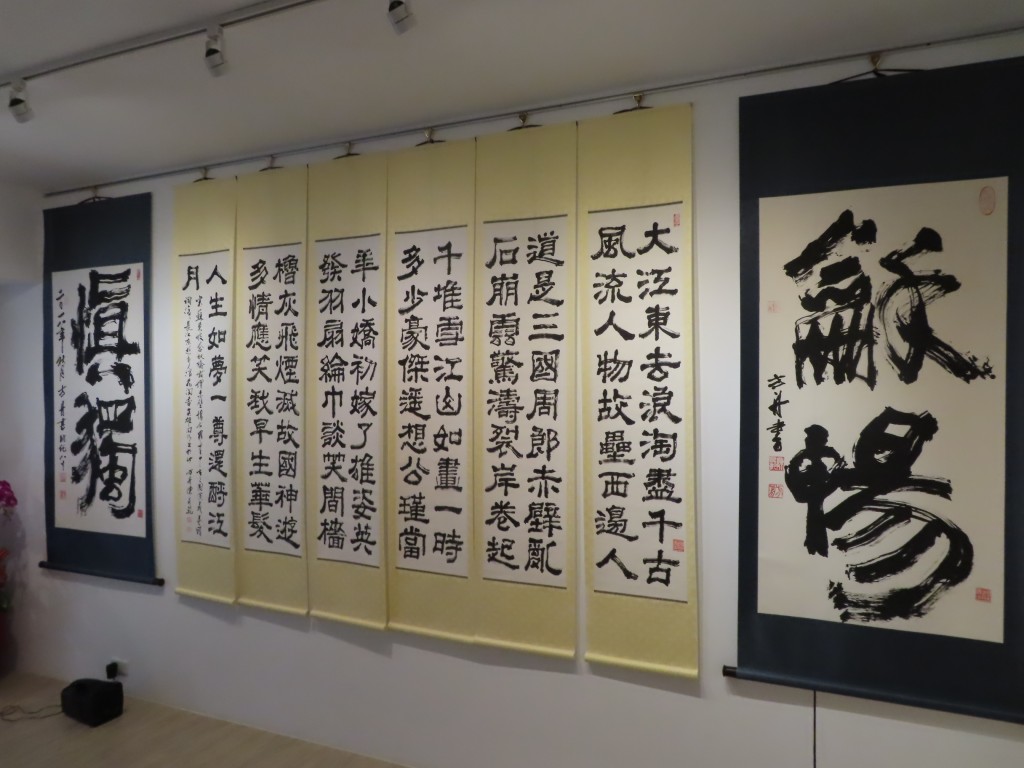 龢暢
大江東去浪淘盡千古
風流人物故壘西邊人
道是三國周郎赤壁亂
石崩雲驚濤裂岸卷起
千堆雪江山如畫一時
多少豪傑遥想公瑾當
年小嬌初嫁了雄姿英
發羽扇綸巾談笑間檣
櫓灰飛煙滅故國神遊
多情應笑我早生華髮
人生如夢一尊還酹江
月
愼獨